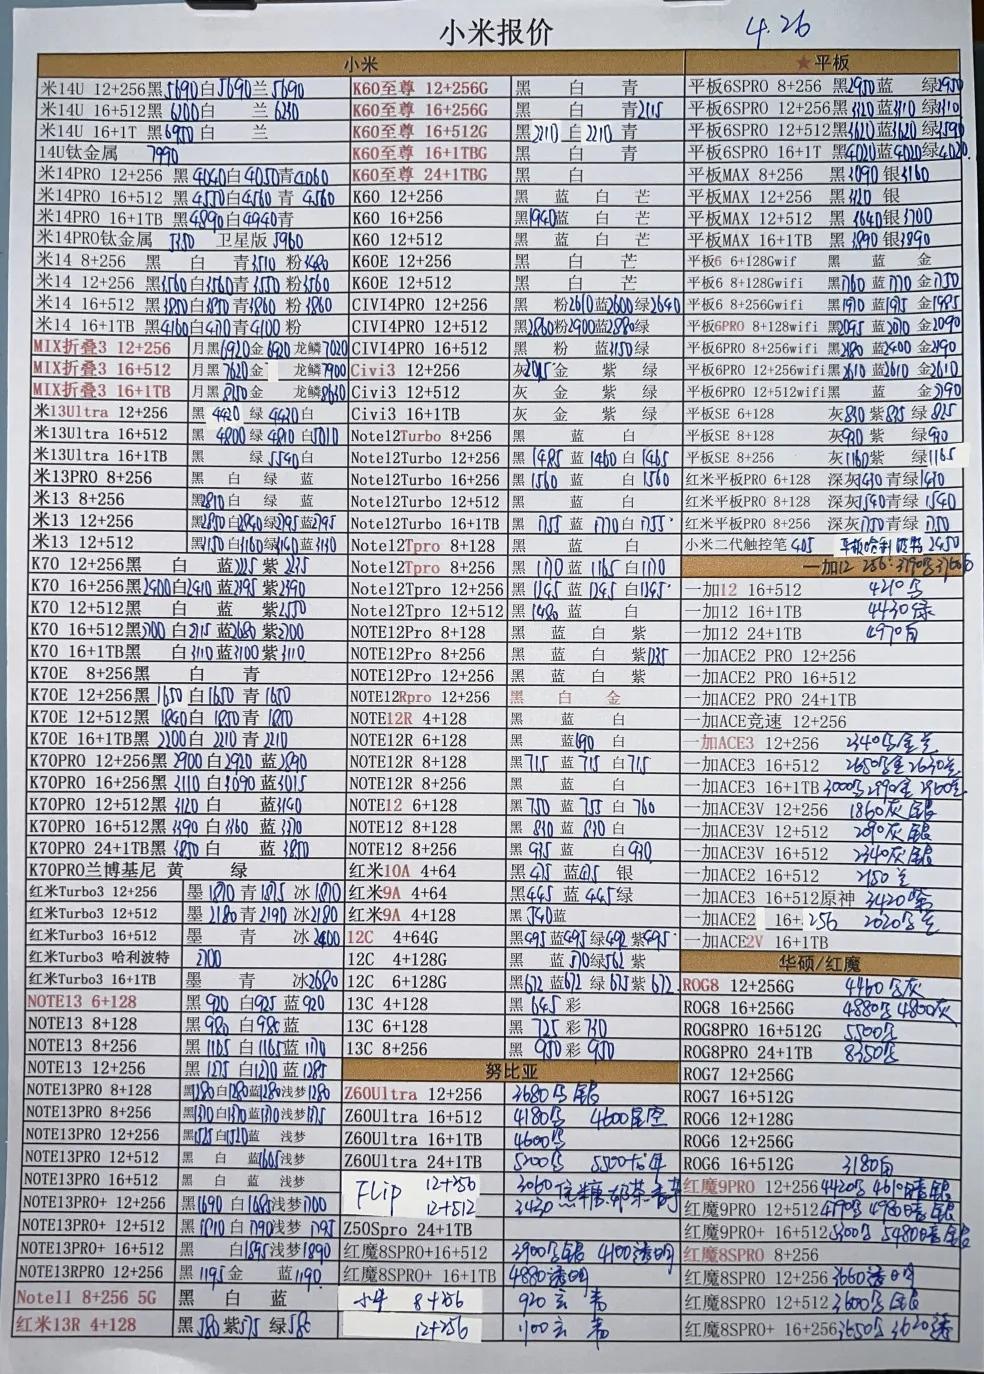 小米报价 4.26
小米
米14U 12+256黑5690白5690兰5690
米14U 16+512黑6200白 兰 6230
米14U 16+1T 黑6950白 兰
14U钛金属 7990
米14PRO 12+256 黑 4040白4050青4060
米14PRO 16+512 黑4550白4560 青 4560
米14PRO 16+1TB 黑4890白4940青
米14PRO钛金属 5350 卫星版 5960
米14 8+256 黑 白 青3510 粉3480
米14 12+256 黑3560白3560青3550 粉3560
米14 16+512 黑3850白3850青3860 粉3860
米14 16+1TB 黑4160白4170青4100 粉
MIX折叠3 12+256 月黑6920金6920 龙鳞7020
MIX折叠3 16+512 月黑7620金 龙鳞7900
MIX折叠3 16+1TB 月黑8150金 龙鳞8630
米13Ultra 12+256 黑 4420 绿 4420白
米13Ultra 16+512 黑 4800 绿 4810 白5010
米13Ultra 16+1TB 绿 5540白
米13PRO 8+256 黑 白 绿 蓝
米13 8+256 黑2810白 绿 蓝
米13 12+256 黑2850白2840绿2795蓝2795
米13 12+512 黑3150白3160绿3140蓝3130
K70 12+256黑 白 蓝2225 紫2235
K70 16+256黑2400白2410 蓝2395 紫2390
K70 12+512黑 白 蓝 紫2550
K70 16+512黑2700 白2715 蓝2680 紫2700
K70 16+1TB黑 白3110蓝3100紫3110
K70E 8+256黑 白 青
K70E 12+256黑 1650 白1650 青 1650
K70E 12+512黑 1840白 1850 青 1850
K70E 16+1TB黑 2200 白 2210 青 2210
K70PRO 12+256黑 2900 白2920 蓝2890
K70PRO 16+256黑 3110 白3090 蓝3015
K70PRO 12+512黑 3120 白 蓝3140
K70PRO 16+512黑 3390 白3360 蓝3370
K70PRO 24+1TB黑 3850 白 蓝 3850
K70PRO兰博基尼 黄 绿
红米Turbo3 12+256 墨 1870 青 1875 冰 1870
红米Turbo3 12+512 墨 2180 青 2190 冰 2180
红米Turbo3 16+512 墨 青 冰 2400
红米Turbo3 哈利波特 2700
红米Turbo3 16+1TB 墨 青 冰2680
NOTE13 6+128 黑 920 白925 蓝 920
NOTE13 8+128 黑 980 白 980 蓝
NOTE13 8+256 黑 1165 白 1165蓝 1170
NOTE13 12+256 黑 1275 白1270 蓝 1285
NOTE13PRO 8+128 黑1280白1280蓝1280浅梦1280
NOTE13PRO 8+256 黑1370白1370蓝1370浅梦1375
NOTE13PRO 12+256 黑1525白1520蓝 浅梦
NOTE13PRO 12+512 黑 白 蓝1605浅梦
NOTE13PRO 16+512 黑 白 蓝 浅梦
NOTE13PRO+ 12+256 黑1690 白1685浅梦1700
NOTE13PRO+ 12+512 黑1810白1790浅梦1795
NOTE13PRO+ 16+512 黑 白1895浅梦1890
NOTE13RPRO 12+256 黑 1195 金 蓝 1190
Note11 8+256 5G 黑 白 蓝
红米13R 4+128 黑 580 紫575 绿 580
K60至尊 12+256G 黑 白 青
K60至尊 16+256G 黑 白 青2115
K60至尊 16+512G 黑2210 白 2210 青
K60至尊 16+1TBG 黑 白 青
K60至尊 24+1TBG 黑 白
K60 12+256 黑 蓝 白 芒
K60 16+256 黑1940蓝 白 芒
K60 12+512 黑 蓝 白 芒
K60E 12+256 黑 白 芒
K60E 12+512 黑 白 芒
CIVI4PRO 12+256 黑 粉2610蓝2600绿2640
CIVI4PRO 12+512 黑2860粉2900蓝2880绿
CIVI4PRO 16+512 黑 粉 蓝3150绿
Civi3 12+256 灰2045金 紫 绿
Civi3 12+512 灰 金 紫 绿
Civi3 16+1TB 灰 金 紫 绿
Note12Turbo 8+256 黑 蓝 白
Note12Turbo 12+256 黑 1485 蓝 1460 白 1465
Note12Turbo 16+256 黑 1560 蓝 白 1560
Note12Turbo 12+512 黑 蓝 白
Note12Turbo 16+1TB 黑 1755 蓝 1770 白 1755
Note12Tpro 8+128 黑 蓝 白
Note12Tpro 8+256 黑 1170 蓝 1165 白1170
Note12Tpro 12+256 黑 1245 蓝 1245 白1245
Note12Tpro 12+512 黑 1480 蓝 白
NOTE12Pro 8+128 黑 蓝 白 紫
NOTE12Pro 8+256 黑 蓝 白 紫1135
NOTE12Pro 12+256 黑 蓝 白 紫
NOTE12Rpro 12+256 黑 白 金
NOTE12R 4+128 黑 蓝 白
NOTE12R 6+128 黑 蓝690 白
NOTE12R 8+128 黑 715 蓝 715 白 715
NOTE12R 8+256 黑 蓝 白
NOTE12 6+128 黑 750 蓝 755 白 760
NOTE12 8+128 黑 830 蓝 830 白
NOTE12 8+256 黑 935 蓝 白930
红米10A 4+64 黑 475 蓝475 银
红米9A 4+64 黑445 蓝 445绿
红米9A 4+128 黑 540蓝
12C 4+64G 黑495 蓝495 绿492 紫495
12C 4+128G 黑 蓝 570绿562 紫
12C 6+128G 黑672 蓝672 绿 675 紫 672
13C 4+128 黑 645 彩
13C 6+128 黑 725 彩 730
13C 8+256 黑 950 彩 950
努比亚
Z60Ultra 12+256 3680黑 银
Z60Ultra 16+512 4180黑 4600星空
Z60Ultra 16+1TB 4600黑
Z60Ultra 24+1TB 5200黑
Flip 12+256 3060
12+512 3430
Z50Spro 24+1TB
红魔8SPRO+16+512 3900黑银 4100透明
红魔8SPRO+ 16+1TB 4880透明
小牛 8+256 920
12+256 1100
★平板
平板6SPRO 8+256 黑2950蓝 绿2950
平板6SPRO 12+256 黑3120 蓝3110 绿3110
平板6SPRO 12+512黑3620蓝3620 绿3590
平板6SPRO 16+1T 黑4020蓝4020 绿4020
平板MAX 8+256 黑3090 银3160
平板MAX 12+256 黑3120 银
平板MAX 12+512 黑 3640银3700
平板MAX 16+1TB 黑 3890 银3890
平板6 6+128Gwif 黑 蓝 金
平板6 8+128Gwifi 黑1760 蓝1770 金1750
平板6 8+256Gwifi 黑1970 蓝1975 金1985
平板6PRO 8+128wifi 黑2095 蓝2070 金2090
平板6PRO 8+256wifi 黑2180 蓝2400 金2190
平板6PRO 12+256wifi黑2610 蓝2610 金2610
平板6PRO 12+512wifi黑 蓝 金2790
平板SE 6+128 灰830 紫825 绿 825
平板SE 8+128 灰930 紫 绿930
平板SE 8+256 灰1160紫 绿1165
红米平板PRO 6+128 深灰1430 青绿1430
红米平板PRO 8+128 深灰1540青绿 1540
红米平板PRO 8+256 深灰1750青绿 1750
小米二代触控笔 405 平板哈利波特 2450
一加12 256:
一加12 16+512 4210黑
一加12 16+1TB 4430绿
一加12 24+1TB 4970白
一加ACE2 PRO 12+256
一加ACE2 PRO 16+512
一加ACE2 PRO 24+1TB
一加ACE竞速 12+256
一加ACE3 12+256 2340黑金兰
一加ACE3 16+512 2650黑金 2630兰
一加ACE3 16+1TB 3000黑2990金 2960兰
一加ACE3V 12+256 1860灰 银
一加ACE3V 12+512 2090灰 银
一加ACE3V 16+512 2340灰 银
一加ACE2 16+512 2150 兰
一加ACE3 16+512原神 3420紫
一加ACE2 16+256 2020黑兰
一加ACE2V 16+1TB
华硕/红魔
ROG8 12+256G 4460黑灰
ROG8 16+256G 4880黑 4800灰
ROG8PRO 16+512G 5500黑
ROG8PRO 24+1TB 8350黑
ROG7 12+256G
ROG7 16+512G
ROG6 12+128G
ROG6 12+256G
ROG6 16+512G 3180白
红魔9PRO 12+256 4420黑 4610暗银
红魔9PRO 12+512 4790黑 4980暗银
红魔9PRO+ 16+512 5300黑 5480暗银
红魔8SPRO 8+256
红魔8SPRO 12+256 3660透明
红魔8SPRO 12+512 3600黑银
红魔8SPRO+ 16+256 3650黑 3620透